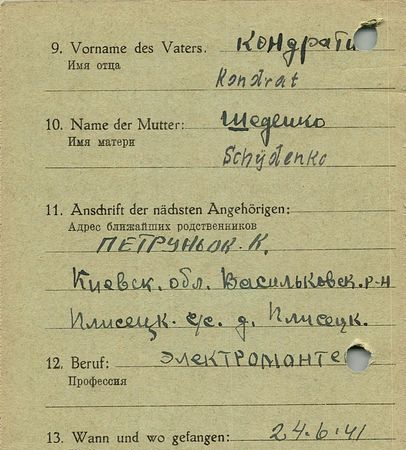 9. Vorname des Vaters. Кондрати
Имя отца
Kondrat
10. Name der Mutter: Шеденко
Имя матери
Schydenko
11. Anschrift der nächsten Angehörigen:
Адрес ближайших родственников
ПЕТРУНЬОК. К.
Киевск. обл. Васильковск. р-н
Плисецк. с/с. д. Плисецк.
12. Beruf: ЭЛЕКТРОМОНТЕ
Профессия
13. Wann und wo gefangen: 24.6.41